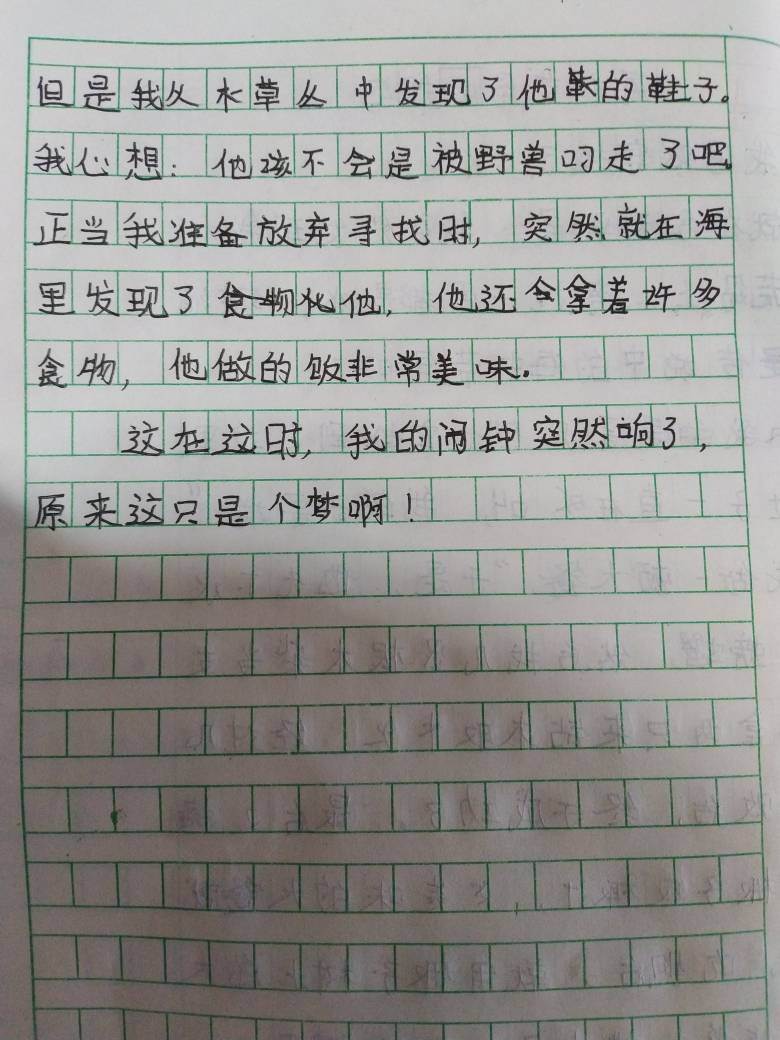 但是我从水草丛中发现了他的鞋子。
我心想：他该不会是被野兽叼走了吧。
正当我准备放弃寻找时，突然就在海
里发现了他，他还拿着许多
食物，他做的饭非常美味。
这在这时，我的闹钟突然响了，
原来这只是个梦啊！